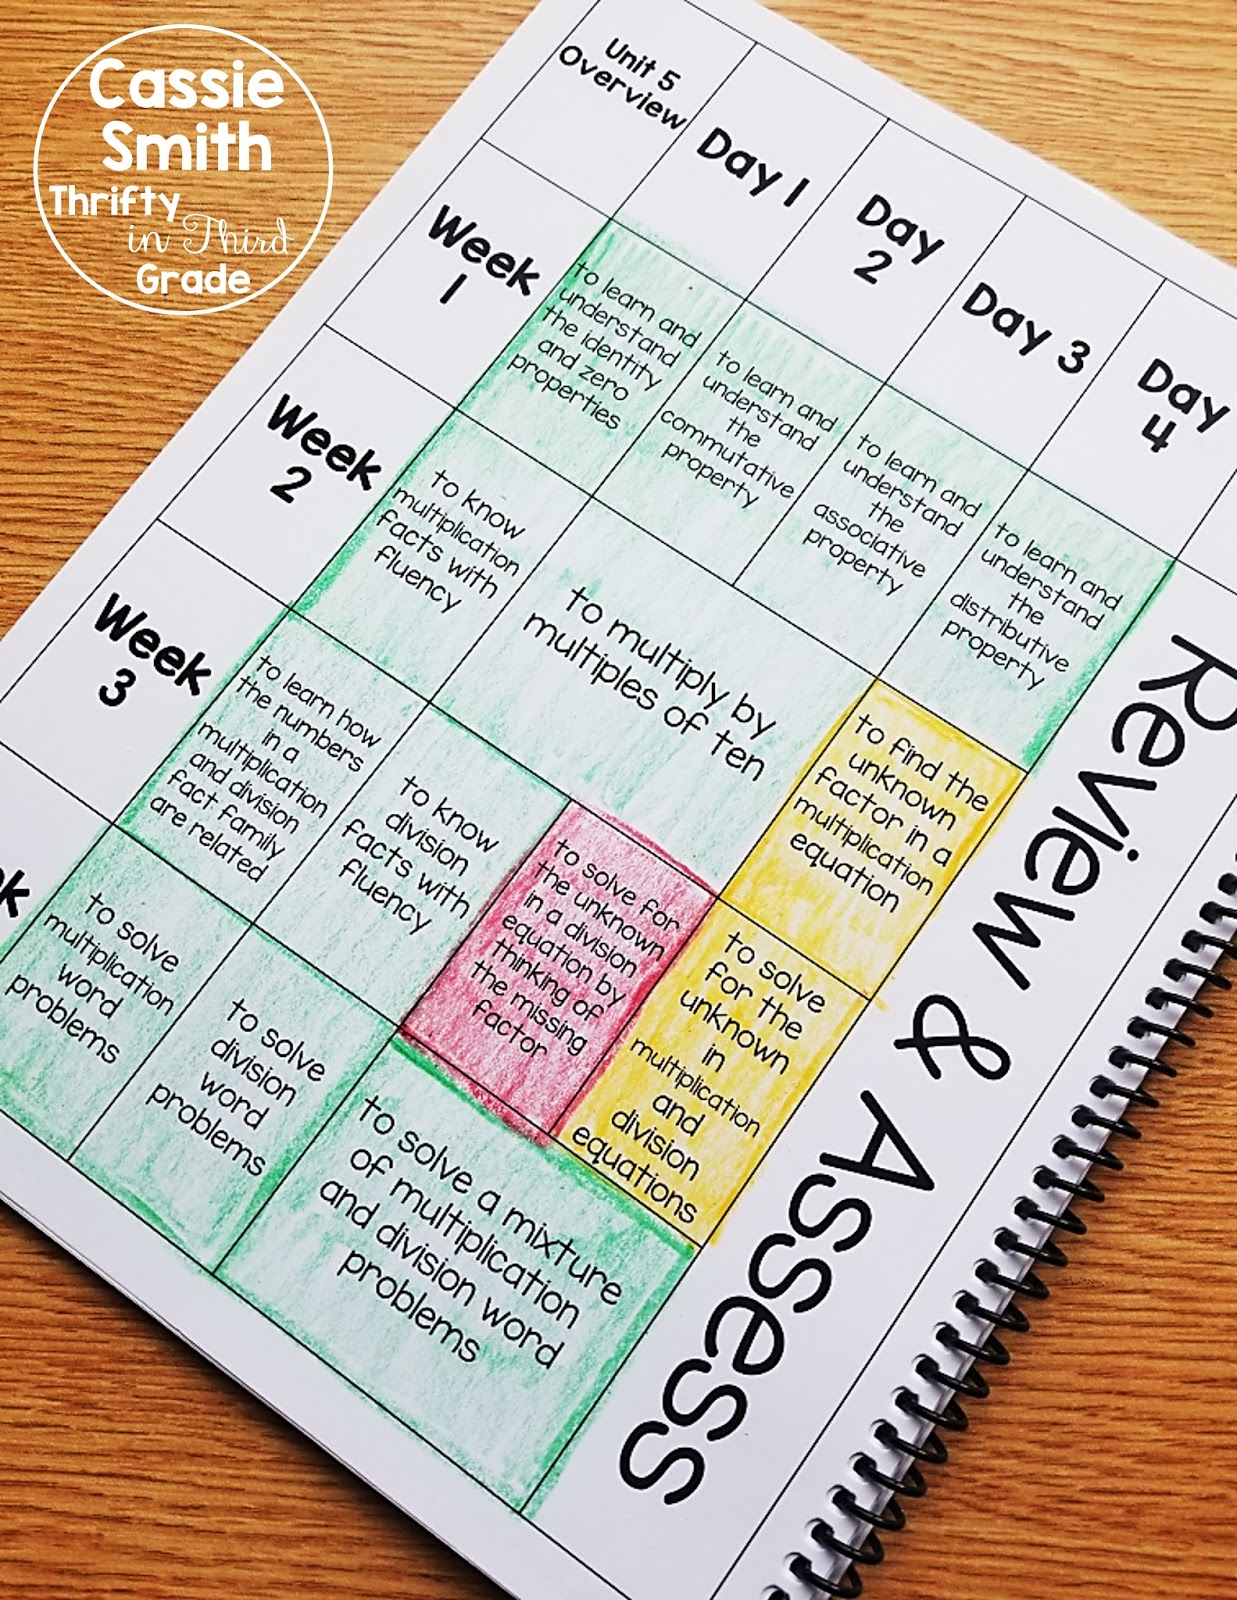 Cassie
Smith
Thrifty
in Third
Grade
Unit 5
Overview
Day 1
Day
2
Day 3
Day
4
Week
1
to learn and
understand
the identity
and zero
properties
to learn and
understand
the
commutative
property
to learn and
understand
the
associative
property
to learn and
understand
the
distributive
property
Week
2
to know
multiplication
facts with
fluency
to multiply by
multiples of ten
to find the
unknown
factor in a
multiplication
equation
Week
3
to learn how
the numbers
in a
multiplication
and division
fact family
are related
to know
division
facts with
fluency
to solve for
the unknown
in a division
equation by
thinking of
the missing
factor
to solve
for the
unknown
in
multiplication
and
division
equations
to solve
multiplication
word
problems
to solve
division
word
problems
to solve a mixture
of multiplication
and division word
problems
Review & Assess